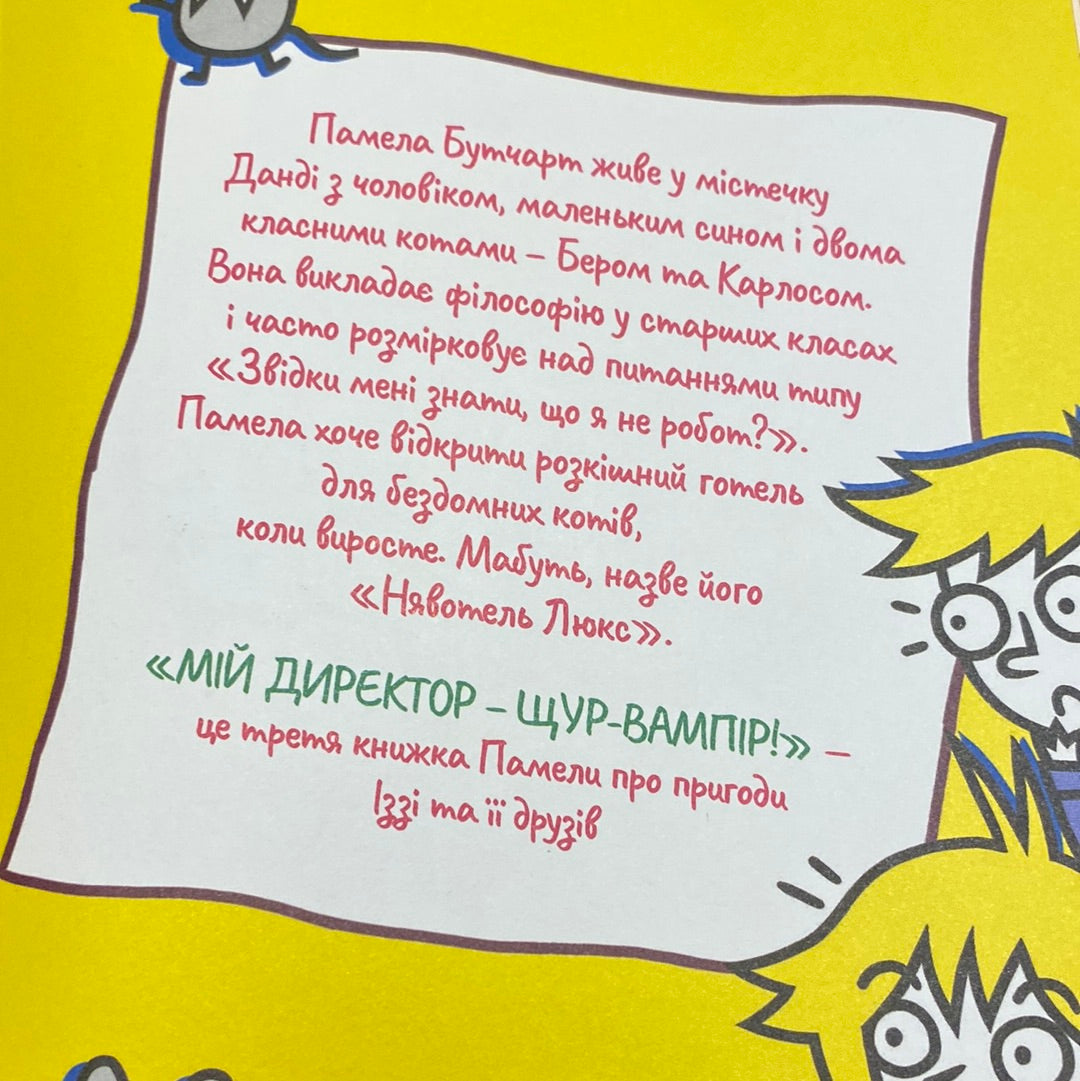 Памела Бутчарт живе у містечку
Данді з чоловіком, маленьким сином і двома
класними котами – Бером та Карлосом.
Вона викладає філософію у старших класах
і часто розмірковує над питаннями типу
«Звідки мені знати, що я не робот?».
Памела хоче відкрити розкішний готель
для бездомних котів,
коли виросте. Мабуть, назве його
«Нявотель Люкс».
«МІЙ ДИРЕКТОР – ЩУР-ВАМПІР!» –
це третя книжка Памели про пригоди
Іззі та її друзів